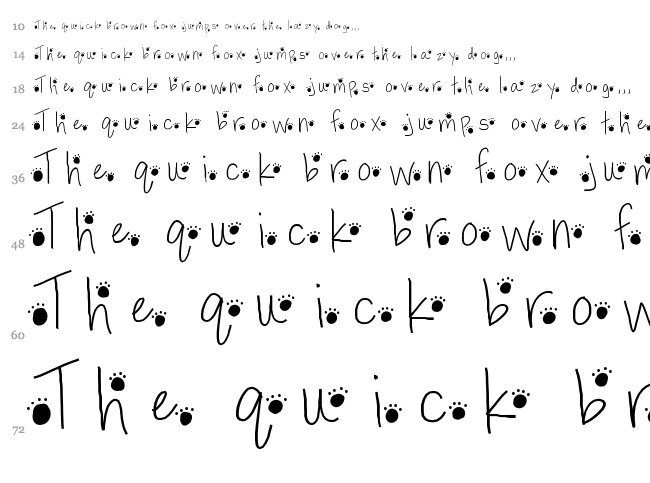 10 The quick brown fox jumps over the lazy dog,,,
14 The quick brown fox jumps over the lazy dog,,,
18 The quick brown fox jumps over the lazy dog,,,
24 The quick brown fox jumps over the
36 The quick brown fox jum
48 The quick brown f
60 The quick brow
72 The quick br